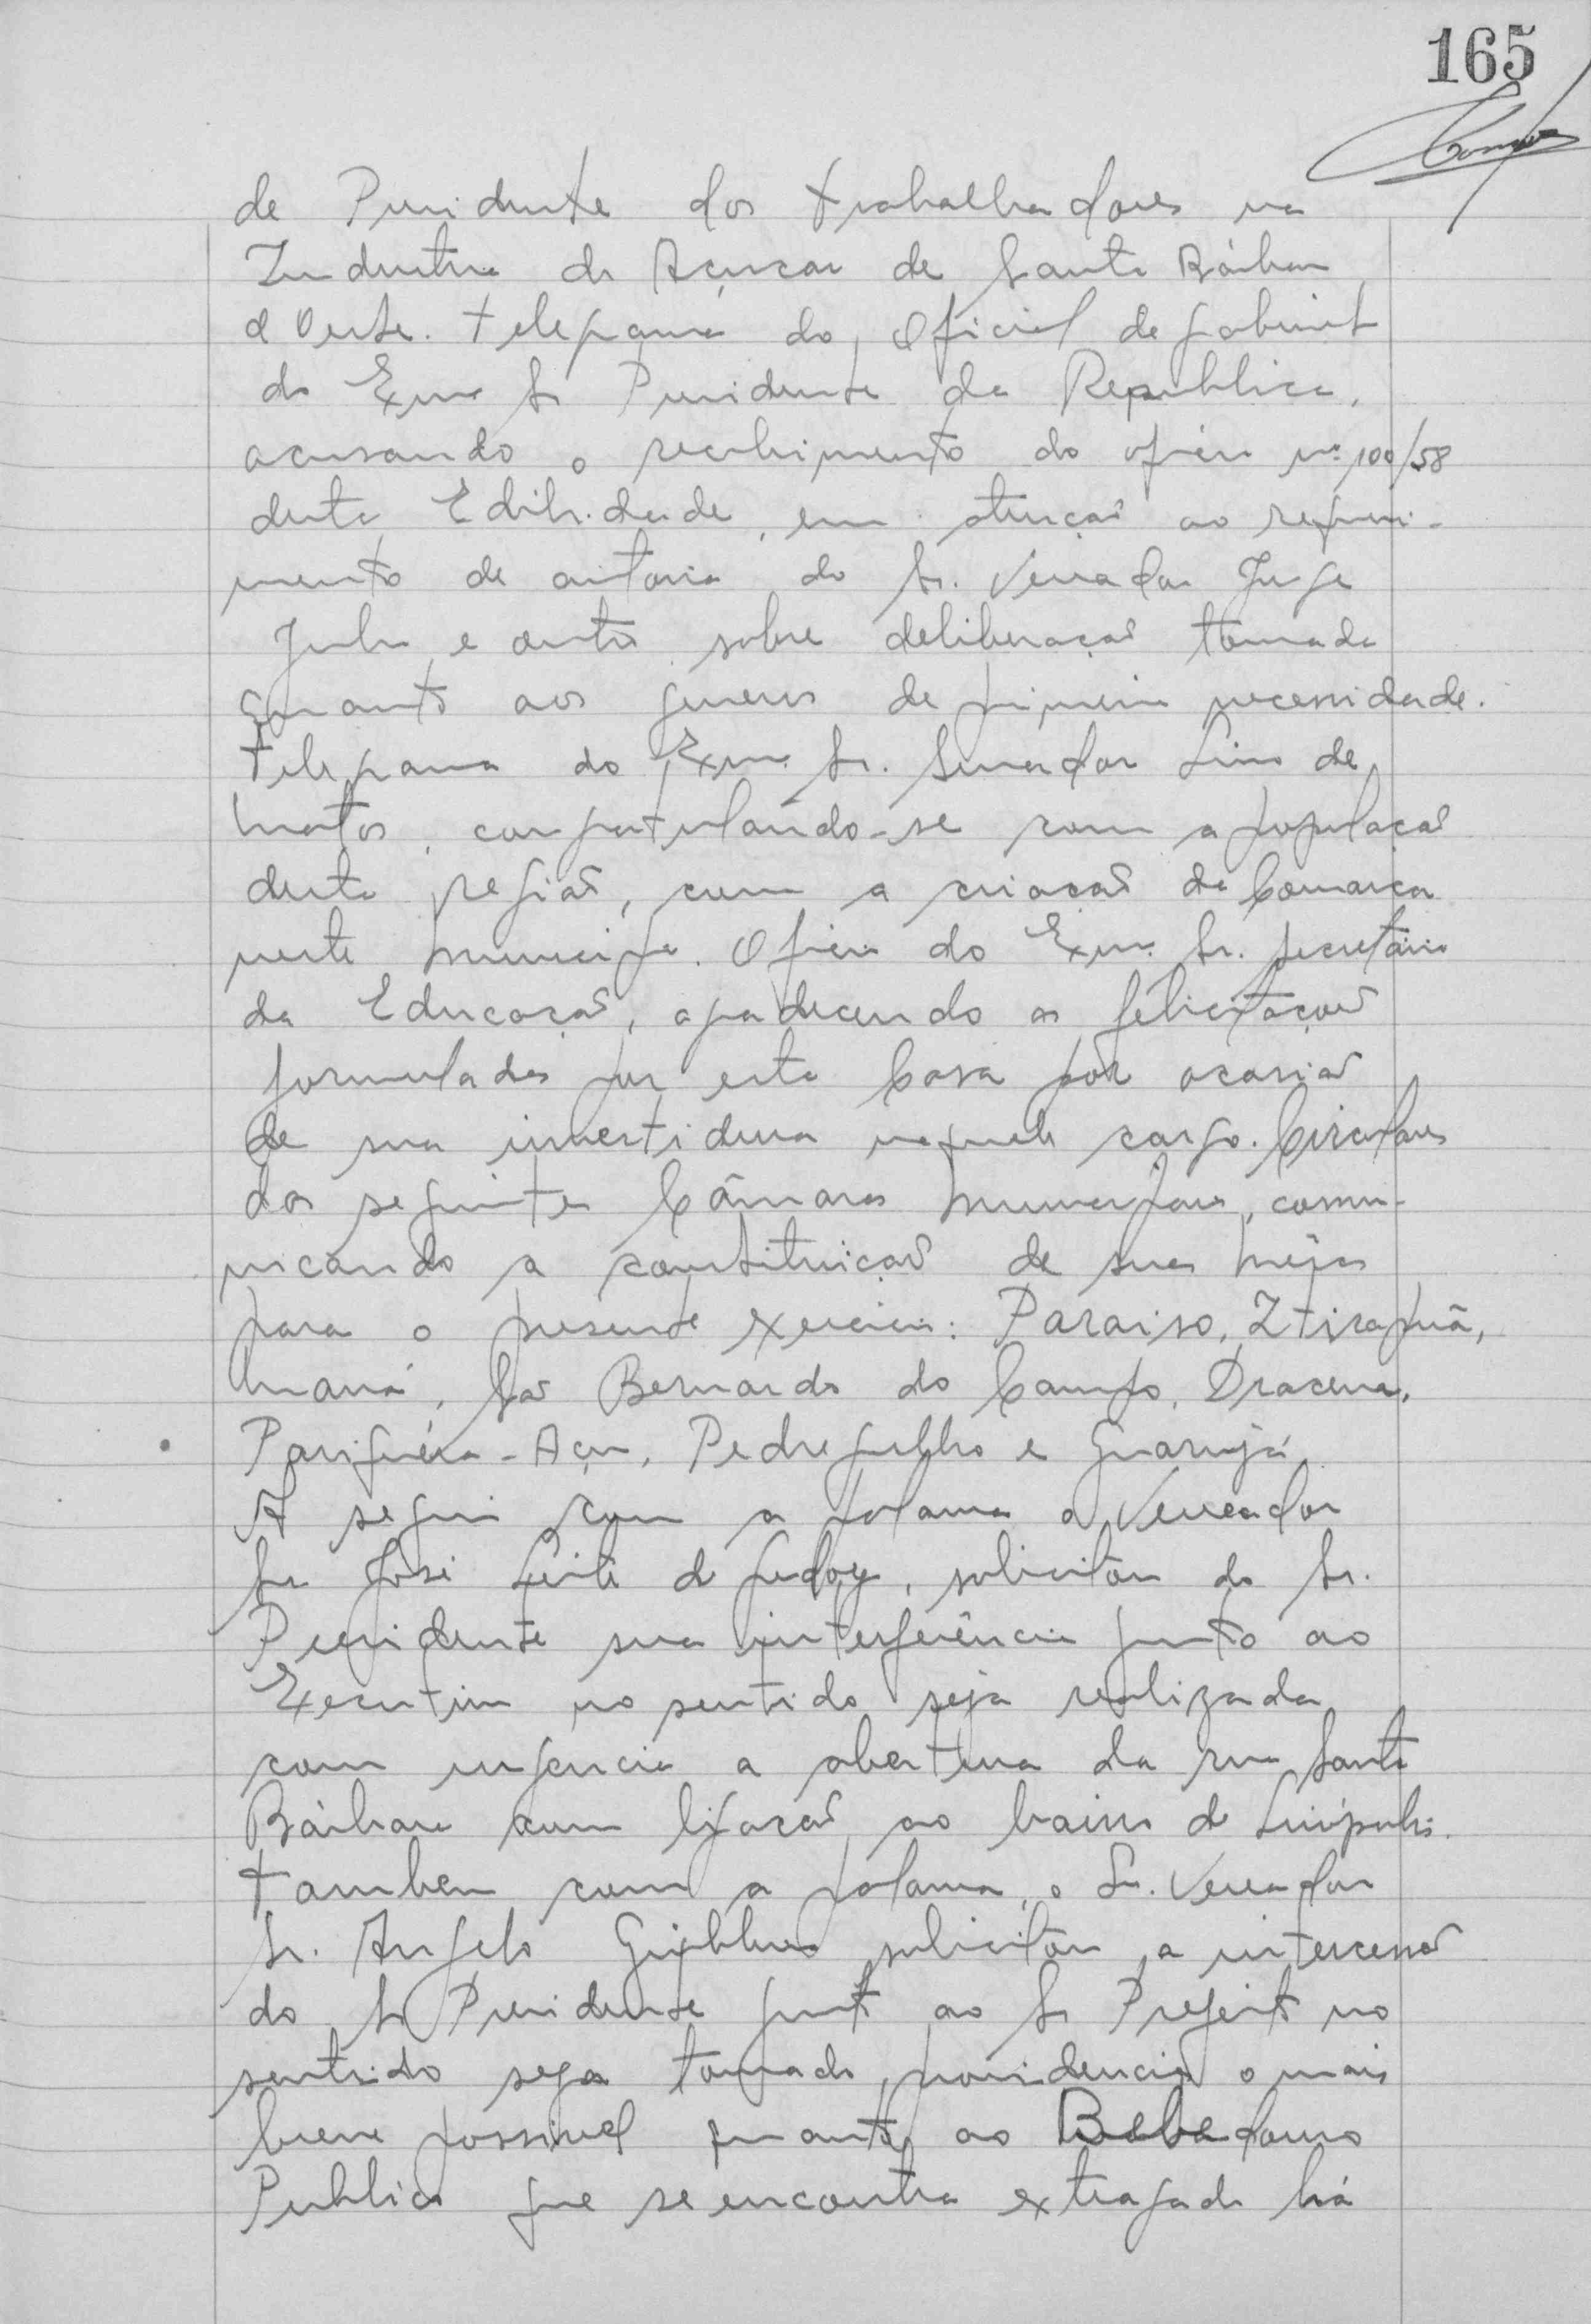 165
de Presidente dos trabalhadores na
Industria do Açucar de Santa Bárbara
d'Oeste. Telegrama do Oficial de gabinete
do Exmo Sr Presidente da Republica,
acusando o recebimento do oficio nº 100/58
desta Edilidade, em atenção ao requeri-
mento de autoria do Sr. Vereador Jorge
Julio e outro sobre deliberação tomada
quanto aos generos de primeira necessidade.
Telegrama do Exmo. Sr. Senador Lino de
Matos, congratulando-se com a população
desta região, com a criação da Comarca
neste Municipio. Oficio do Exmo. Sr. Secretário
da Educação, agradecendo as felicitações
formuladas por esta Casa por ocasião
de sua investidura naquele cargo. Circulares
das seguintes Câmaras Municipais, comu-
nicando a constituição de suas Mêsas
para o presente exercicio: Paraiso, Itirapuã,
Mauá, São Bernardo do Campo, Dracena,
Pariquéra-Açu, Pedregulho e Guarujá.
A seguir com a palavra o Vereador
Sr José Leite de Godoy, solicitou do Sr.
Presidente sua interferência junto ao
Executivo no sentido seja realizada
com urgencia a abertura da rua Santa
Bárbara com ligação ao bairro de Linópolis.
Tambem com a palavra, o Sr. Vereador
Sr. Angelo solicitou a intercessão
do Sr Presidente junto ao Sr Prefeito no
sentido seja tomado providencia o mais
breve possivel quanto ao Bebedouro
Publico que se encontra estragado há